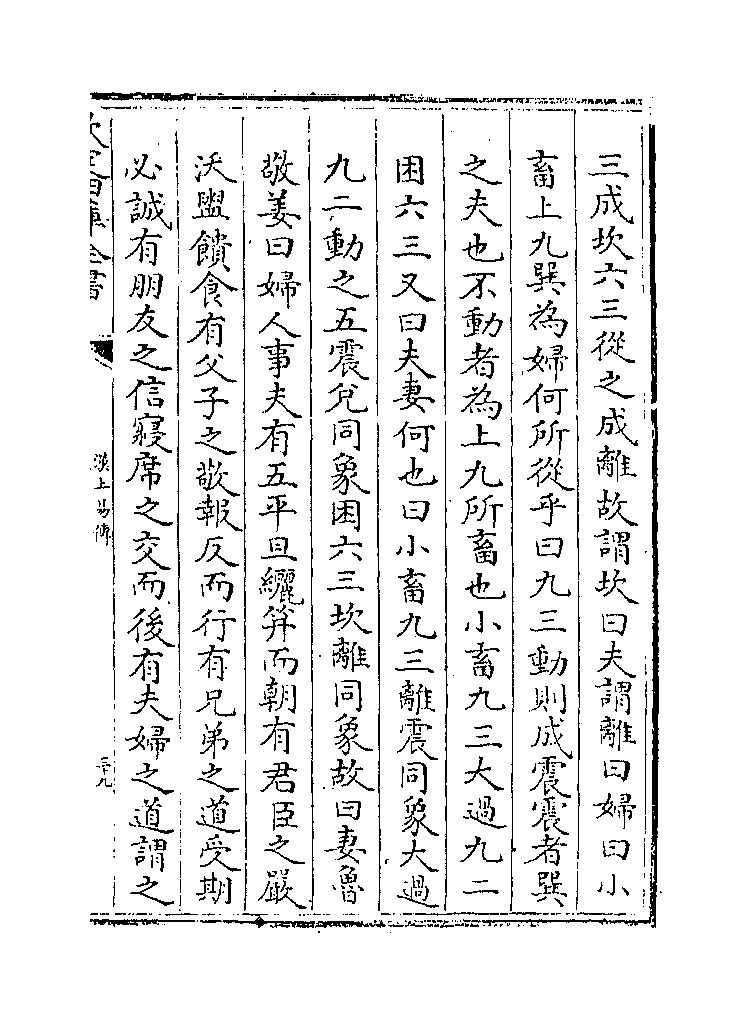 三成坎六三從之成離故謂坎曰夫謂離曰婦曰小
畜上九巽為婦何所從乎曰九三動則成震震者巽
之夫也不動者為上九所畜也小畜九三大過九二
困六三又曰夫妻何也曰小畜九三離震同象大過
九二動之五震兊同象困六三坎離同象故曰妻魯
敬姜曰婦人事夫有五平旦纚笄而朝有君臣之嚴
沃盥饋食有父子之敬報反而行有兄弟之道受期
必誠有朋友之信寢席之交而後有夫婦之道謂之
欽定四庫全書
漢上易傳
三十九